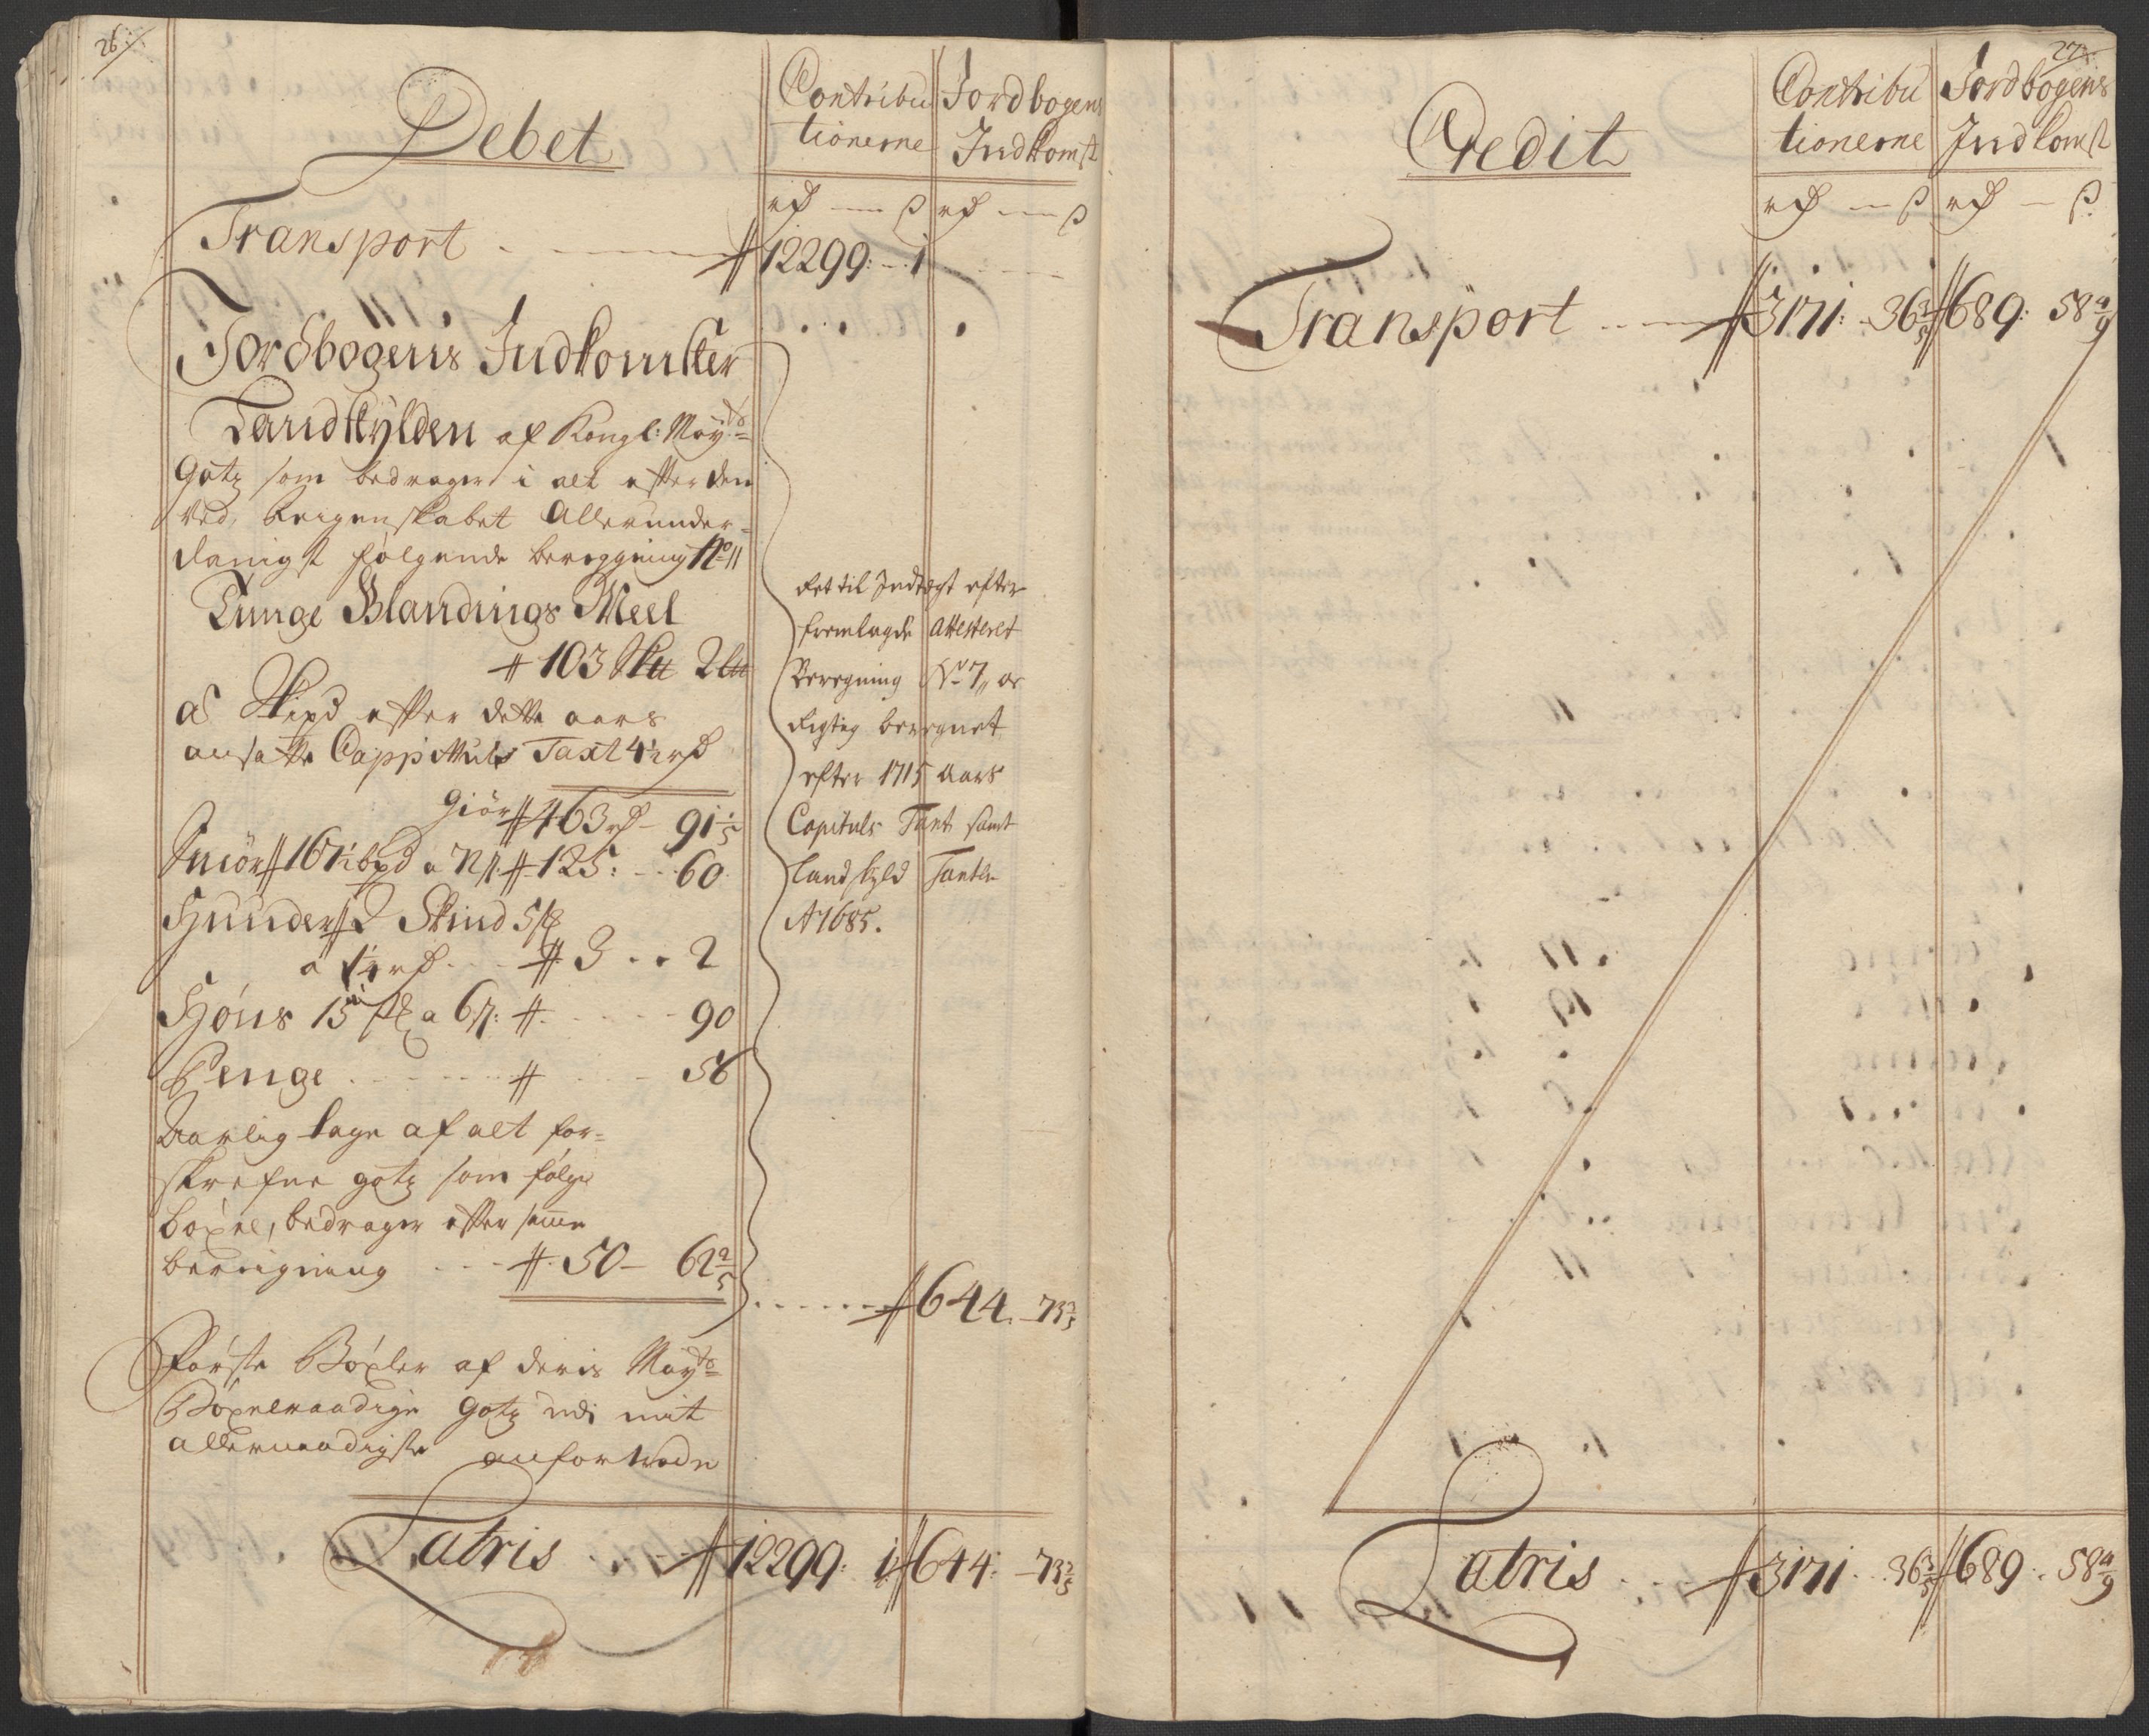 26:
Debet
Contribu
tionerne
Jordbogens
Indkomst
rd — ß rd — ß
Transport # 12299: 1
Jordbogens Indkomster
Landskylden af Kongl: May:ts
Gotz som bedrager i alt efter den
ved, Reigenskabet Allerunder-
danigst følgende beregning No 11
Tunge Blandings Meel
# 103 2
a Skipd efter dette aars
ansatte Cappittuls Taxt 4½ rd
Giør # 463 rd - 91 1/5
Smør # 16 bpd a # 125: - 60
Huuder # 2 Skind 5
a rd # 3 .. 2
Høns 15 a 6 ß: # 90
Penge # 56
Aarlig tage af alt for-
skrefne gotz som følge
boxel, bedrager efter samme
beregning # 50 - 62 2/5
# 644. 73 3/5
det til Indtægt efter
fremlagde Attesteret
Beregning No 7, er
rigtig beregnet
efter 1715 Aars
Capituls Taxt samt
Landskyld Taxten
A 1685.
Første Böxler af deris May:ts
Böxelraadige gotz udi mit
allernaadigste anfortrode
Latris # 12299: 1 # 644: 73 3/5
27
Credit
Contribu
tionerne
Jordbogens
Indkomst
rd — ß rd — ß
Transport # 3171: 36 3/5 # 689: 58 4/9
Latris # 3171 36 3/5 # 689: 58 4/9